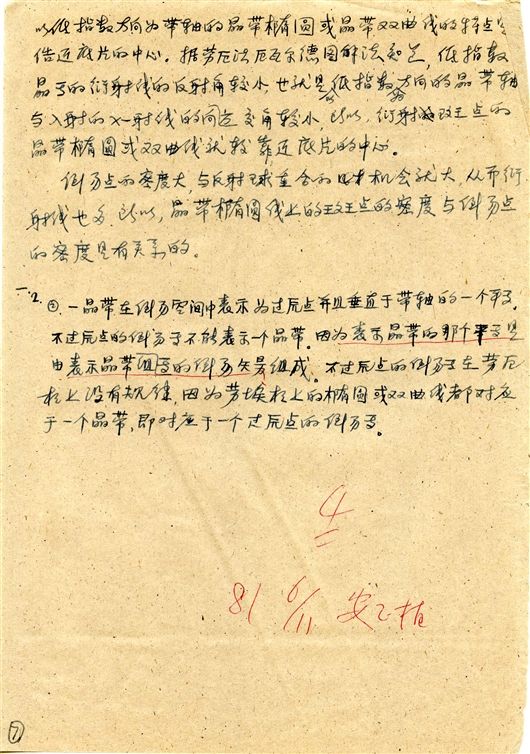 以低指数方向为带轴的晶带椭圆或晶带双曲线的特点是
靠近底片的中心。据劳厄法厄瓦尔德图解法知道,低指数
晶面的衍射线的反射角较小也就是低指数方向的晶带轴
与入射的X-射线的间的交角较小,所以,衍射斑点的
晶带椭圆或双曲线就较靠近底片的中心。
倒易点的密度大,与反射球重合的机会就大,从而衍
射线也多,所以,晶带椭圆线上的斑点的密度与倒易点
的密度是有关系的。
一.2. ①.一晶带在倒易空间中表示为过原点并且垂直于带轴的一个平面。
不过原点的倒易面不能表示一个晶带。因为表示晶带的那个平面是
由表示晶带组面的倒易矢量组成。不过原点的倒易面在劳厄
相上没有规律,因为劳埃相上的椭圆或双曲线都对应
于一个晶带,即对应于一个过原点的倒易面。
4
81 6/11
⑦